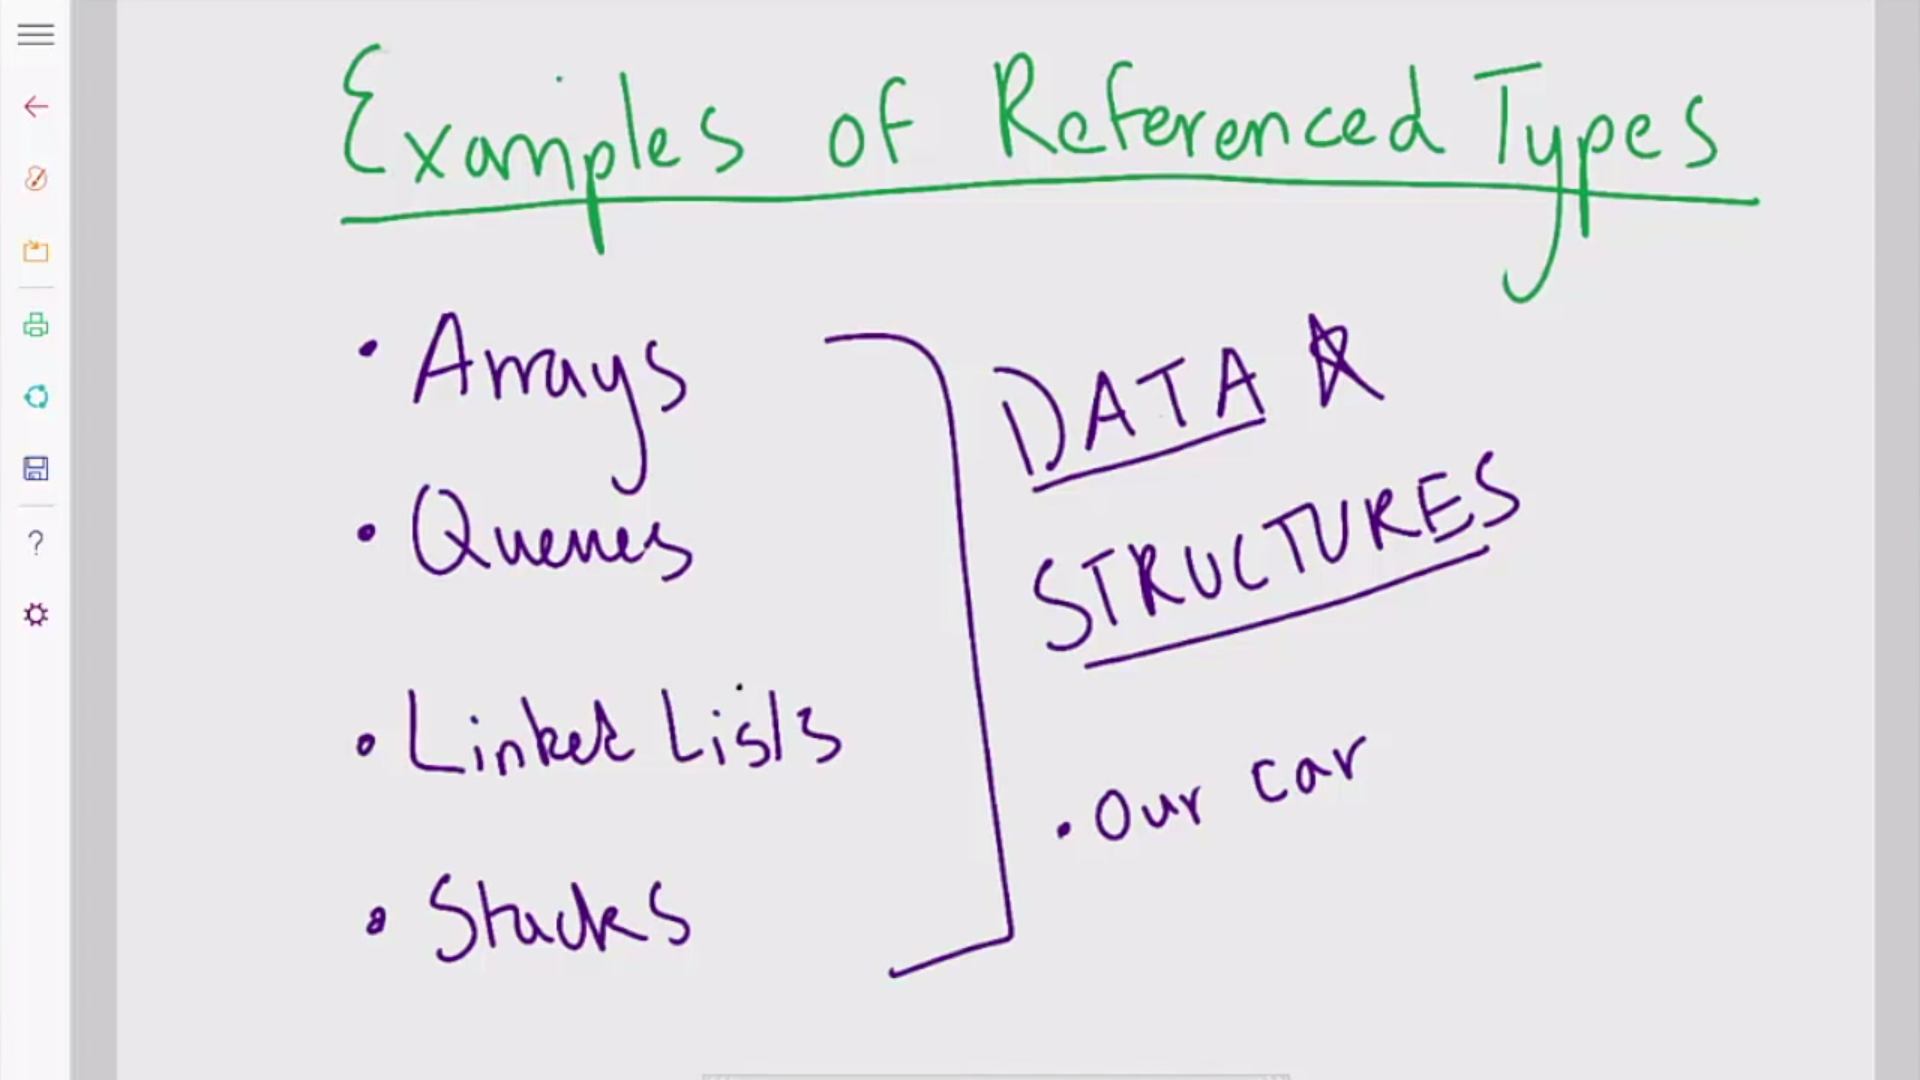 Examples of Referenced Types
• Arrays
• Queues
• Linked Lists
• Stacks
DATA
STRUCTURES
• Our car
?